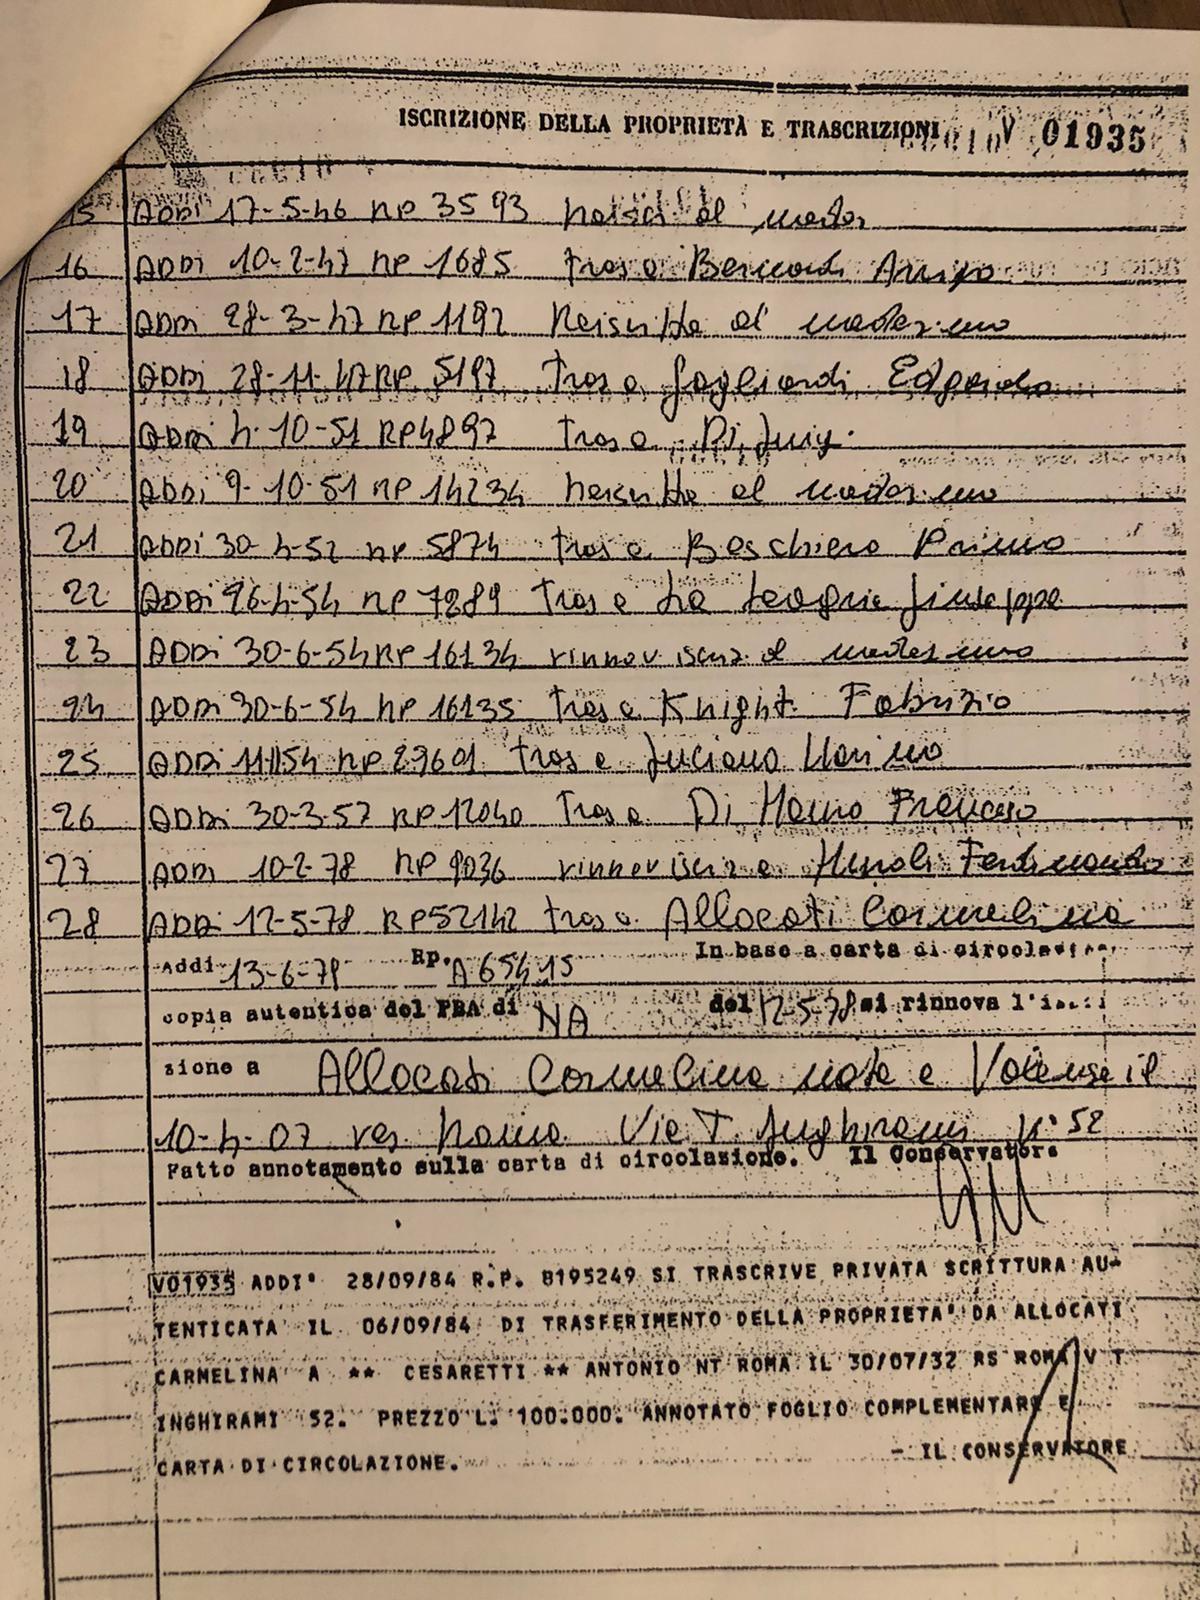 ISCRIZIONE DELLA PROPRIETÀ E TRASCRIZIONI V 01935
15 ADDI 17-5-46 RP 3593 al
16 ADDI 10-2-47 RP 1685 tras a Bernardi Arrigo
17 ADDI 28-3-47 RP 1192 Reiscritta al medesimo
18 ADDI 28-11-47 RP 5197 tras a Gagliardi Edgardo
19 ADDI 4-10-51 RP 4897 tras a
20 ADDI 9-10-51 RP 14234 Reiscritta al medesimo
21 ADDI 30-4-52 RP 5874 tras a Beschiera Primo
22 ADDI 26-4-54 RP 7289 tras a Giuseppe
23 ADDI 30-6-54 RP 16134 rinnov iscriz al medesimo
24 ADDI 30-6-54 RP 16135 tras a Knight Fabrizio
25 ADDI 11-11-54 RP 29601 tras a Luciano
26 ADDI 30-3-57 RP 12040 tras a Di Francesco
27 ADDI 10-2-78 RP 9036 rinnov iscriz a Ferdinando
28 ADDI 12-5-78 RP 52142 tras a Allocati Carmelina
Addi 13-6-78 Rp. A 65415 In base a carta di circolazione
copia autentica del PRA di NA del 12-5-78 si rinnova l'i
zione a Allocati Carmelina nata a il
10-4-07 res Roma Via T. Inghirami n° 52
Fatto annotamento sulla carta di circolazione. Il Conservatore
V01935 ADDI' 28/09/84 R.P. B195249 SI TRASCRIVE PRIVATA SCRITTURA AU-
TENTICATA IL 06/09/84 DI TRASFERIMENTO DELLA PROPRIETA' DA ALLOCATI
CARMELINA A ** CESARETTI ** ANTONIO NT ROMA IL 30/07/32 RS ROMA V T
INGHIRAMI 52. PREZZO L. 100.000. ANNOTATO FOGLIO COMPLEMENTARE E
CARTA DI CIRCOLAZIONE. - IL CONSERVATORE